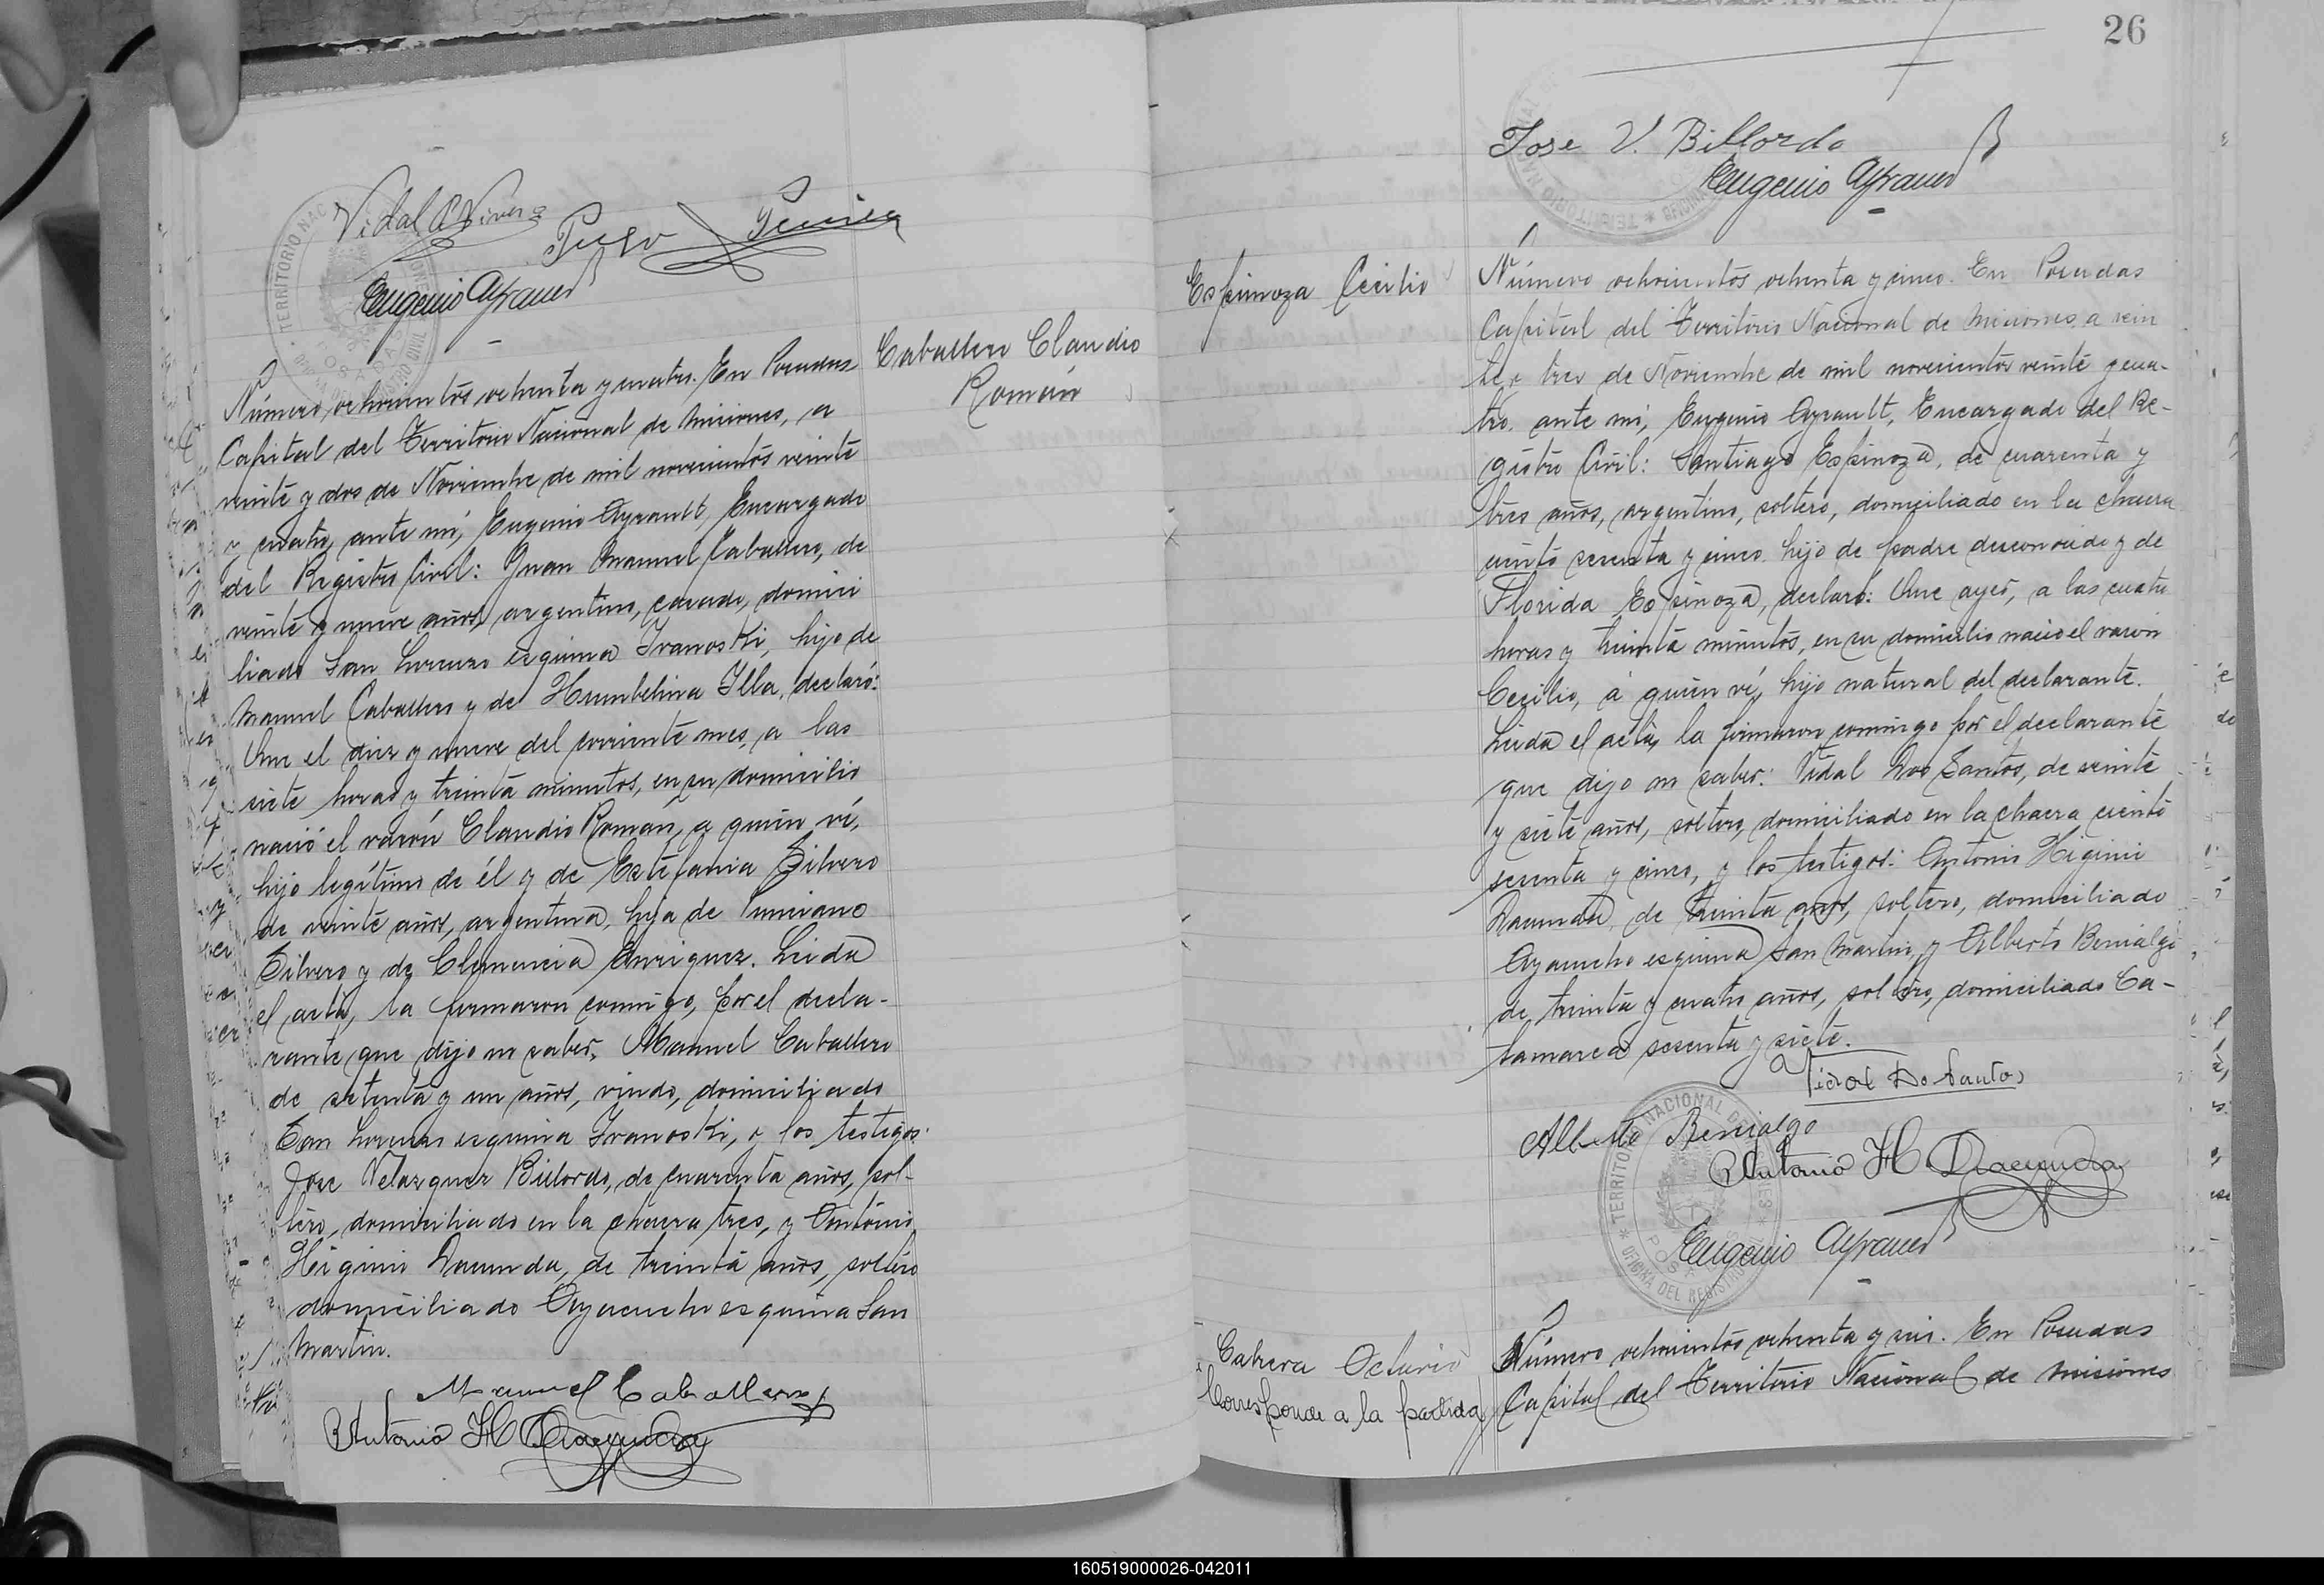 Vidal
Eugenio Ayrault
TERRITORIO NAC
Caballero Claudio
Román
Número ochocientos ochenta y cuatro. En Posadas
Capital del Territorio Nacional de Misiones, a
veinte y dos de Noviembre de mil novecientos veinte
y cuatro, ante mí, Eugenio Ayrault, Encargado
del Registro Civil: Juan Manuel Caballero, de
veinte y nueve años, argentino, casado, domici
liado San Lorenzo esquina Ivanoski, hijo de
Manuel Caballero y de Humbelina Illa, declaró:
Que el diez y nueve del corriente mes, a las
siete horas y treinta minutos, en su domicilio
nació el varón Claudio Román, a quien ví,
hijo legítimo de él y de Estefania Silvero
de veinte años, argentina, hija de Ponciano
Silvero y de Clemencia Enriquez. Leida
el acta, la firmaron conmigo, por el decla-
rante, que dijo no saber, Manuel Caballero
de setenta y un años, viudo, domiciliado
San Lorenzo esquina Ivanoski, y los testigos:
Jose Velazquez Billordo, de cuarenta años, sol-
tero, domiciliado en la chacra tres, y Antonio
Higinio Dacunda, de treinta años, soltero
domiciliado Ayacucho esquina San
Martin.
Manuel Caballero
Antonio H Dacunda
26
Jose V. Billordo
Eugenio Ayrault
Espinoza Cecilio
Número ochocientos ochenta y cinco. En Posadas
Capital del Territorio Nacional de Misiones, a vein
te y tres de Noviembre de mil novecientos veinte y cua-
tro, ante mí, Eugenio Ayrault, Encargado del Re-
gistro Civil: Santiago Espinoza, de cuarenta y
tres años, argentino, soltero, domiciliado en la chacra
ciento sesenta y cinco, hijo de padre desconocido y de
Florida Espinoza, declaró: Que ayer, a las cuatro
horas y treinta minutos, en su domicilio nació el varón
Cecilio, á quien ví, hijo natural del declarante.
Leida el acta, la firmaron conmigo por el declarante
que dijo no saber: Vidal Dos Santos, de veinte
y siete años, soltero, domiciliado en la chacra ciento
sesenta y cinco, y los testigos: Antonio Higinio
Dacunda, de treinta años, soltero, domiciliado
Ayacucho esquina San Martin, y Alberto Benialgo
de treinta y cuatro años, soltero, domiciliado Ca-
tamarca sesenta y siete.
Vidal Do Santos
Alberto Benialgo
Antonio H Dacunda
Eugenio Ayrault
TERRITORIO NACIONAL DE MISIONES
OFICINA DEL REGISTRO CIVIL
POSADAS
Cabrera Octavio
Corresponde a la partida
Número ochocientos ochenta y seis. En Posadas
Capital del Territorio Nacional de Misiones
160519000026-042011